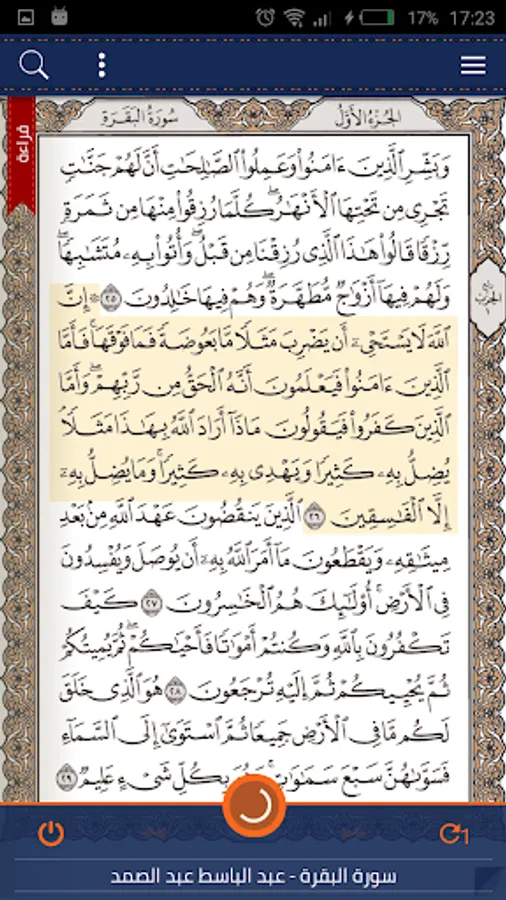 17% 17:23
سُورَةُ البَقَرَةِ
الجُزْءُ الأَوَّلُ
قراءة
وَبَشِّرِ ٱلَّذِينَ ءَامَنُوا۟ وَعَمِلُوا۟ ٱلصَّـٰلِحَـٰتِ أَنَّ لَهُمْ جَنَّـٰتٍ
تَجْرِى مِن تَحْتِهَا ٱلْأَنْهَـٰرُ ۖ كُلَّمَا رُزِقُوا۟ مِنْهَا مِن ثَمَرَةٍ
رِّزْقًا قَالُوا۟ هَـٰذَا ٱلَّذِى رُزِقْنَا مِن قَبْلُ ۖ وَأُتُوا۟ بِهِۦ مُتَشَـٰبِهًا ۖ
وَلَهُمْ فِيهَآ أَزْوَٰجٌ مُّطَهَّرَةٌ ۖ وَهُمْ فِيهَا خَـٰلِدُونَ ٢٥ ۞ إِنَّ
ٱللَّهَ لَا يَسْتَحْىِۦٓ أَن يَضْرِبَ مَثَلًا مَّا بَعُوضَةً فَمَا فَوْقَهَا ۚ فَأَمَّا
ٱلَّذِينَ ءَامَنُوا۟ فَيَعْلَمُونَ أَنَّهُ ٱلْحَقُّ مِن رَّبِّهِمْ ۖ وَأَمَّا
ٱلَّذِينَ كَفَرُوا۟ فَيَقُولُونَ مَاذَآ أَرَادَ ٱللَّهُ بِهَـٰذَا مَثَلًا ۘ
يُضِلُّ بِهِۦ كَثِيرًا وَيَهْدِى بِهِۦ كَثِيرًا ۚ وَمَا يُضِلُّ بِهِۦٓ
إِلَّا ٱلْفَـٰسِقِينَ ٢٦ ٱلَّذِينَ يَنقُضُونَ عَهْدَ ٱللَّهِ مِنۢ بَعْدِ
مِيثَـٰقِهِۦ وَيَقْطَعُونَ مَآ أَمَرَ ٱللَّهُ بِهِۦٓ أَن يُوصَلَ وَيُفْسِدُونَ
فِى ٱلْأَرْضِ ۚ أُو۟لَـٰٓئِكَ هُمُ ٱلْخَـٰسِرُونَ ٢٧ كَيْفَ
تَكْفُرُونَ بِٱللَّهِ وَكُنتُمْ أَمْوَٰتًا فَأَحْيَـٰكُمْ ۖ ثُمَّ يُمِيتُكُمْ
ثُمَّ يُحْيِيكُمْ ثُمَّ إِلَيْهِ تُرْجَعُونَ ٢٨ هُوَ ٱلَّذِى خَلَقَ
لَكُم مَّا فِى ٱلْأَرْضِ جَمِيعًا ثُمَّ ٱسْتَوَىٰٓ إِلَى ٱلسَّمَآءِ
فَسَوَّىٰهُنَّ سَبْعَ سَمَـٰوَٰتٍ ۚ وَهُوَ بِكُلِّ شَىْءٍ عَلِيمٌ ٢٩
ربع
الحزب
١
1
سورة البقرة - عبد الباسط عبد الصمد